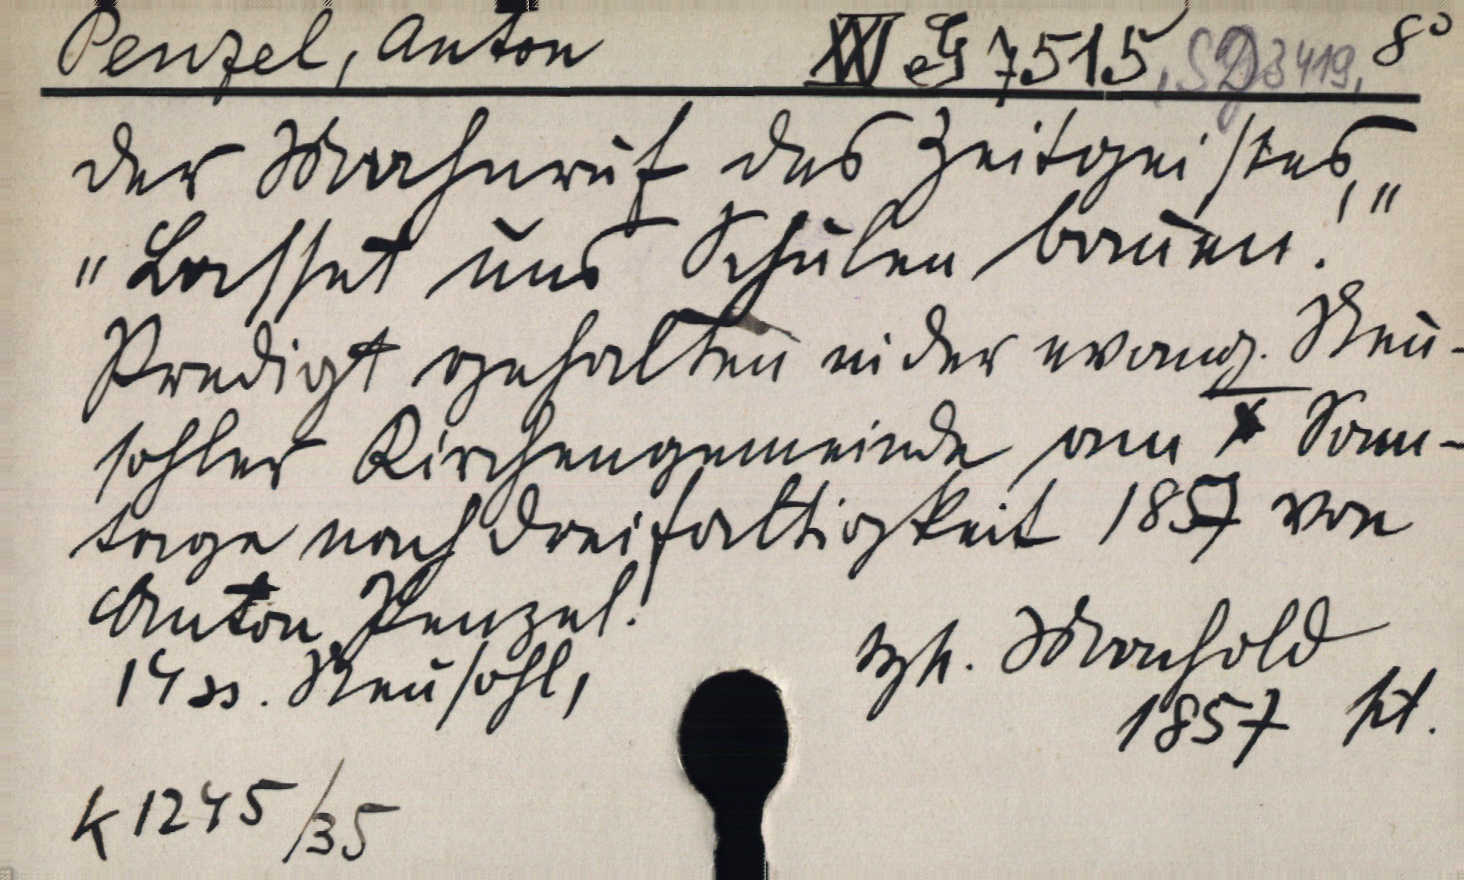 Penzel, Anton XXI G 7515, SD 3419, 8°
Der Mahnruf des Zeitgeistes,"
"Lasset uns Schulen bauen!
Predigt gehalten in der evang. Neu-
sohler Kirchengemeinde am X Sonn-
tage nach Dreifaltigkeit 1857 von
Anton Penzel.
14 ss. Neusohl, Machold
1857 kt.
K 1245/35